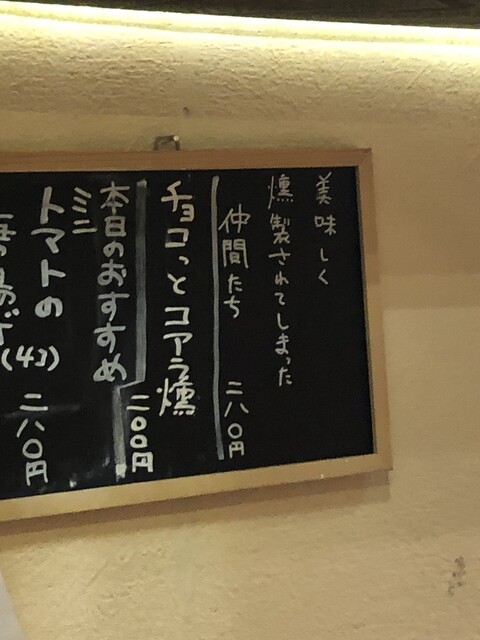 美味しく
燻製されてしまった
仲間たち 二八〇円
チョコっとコアラ燻
二〇〇円
本日のおすすめ
ミニ
トマトの
唐揚げ(4コ)
二八〇円